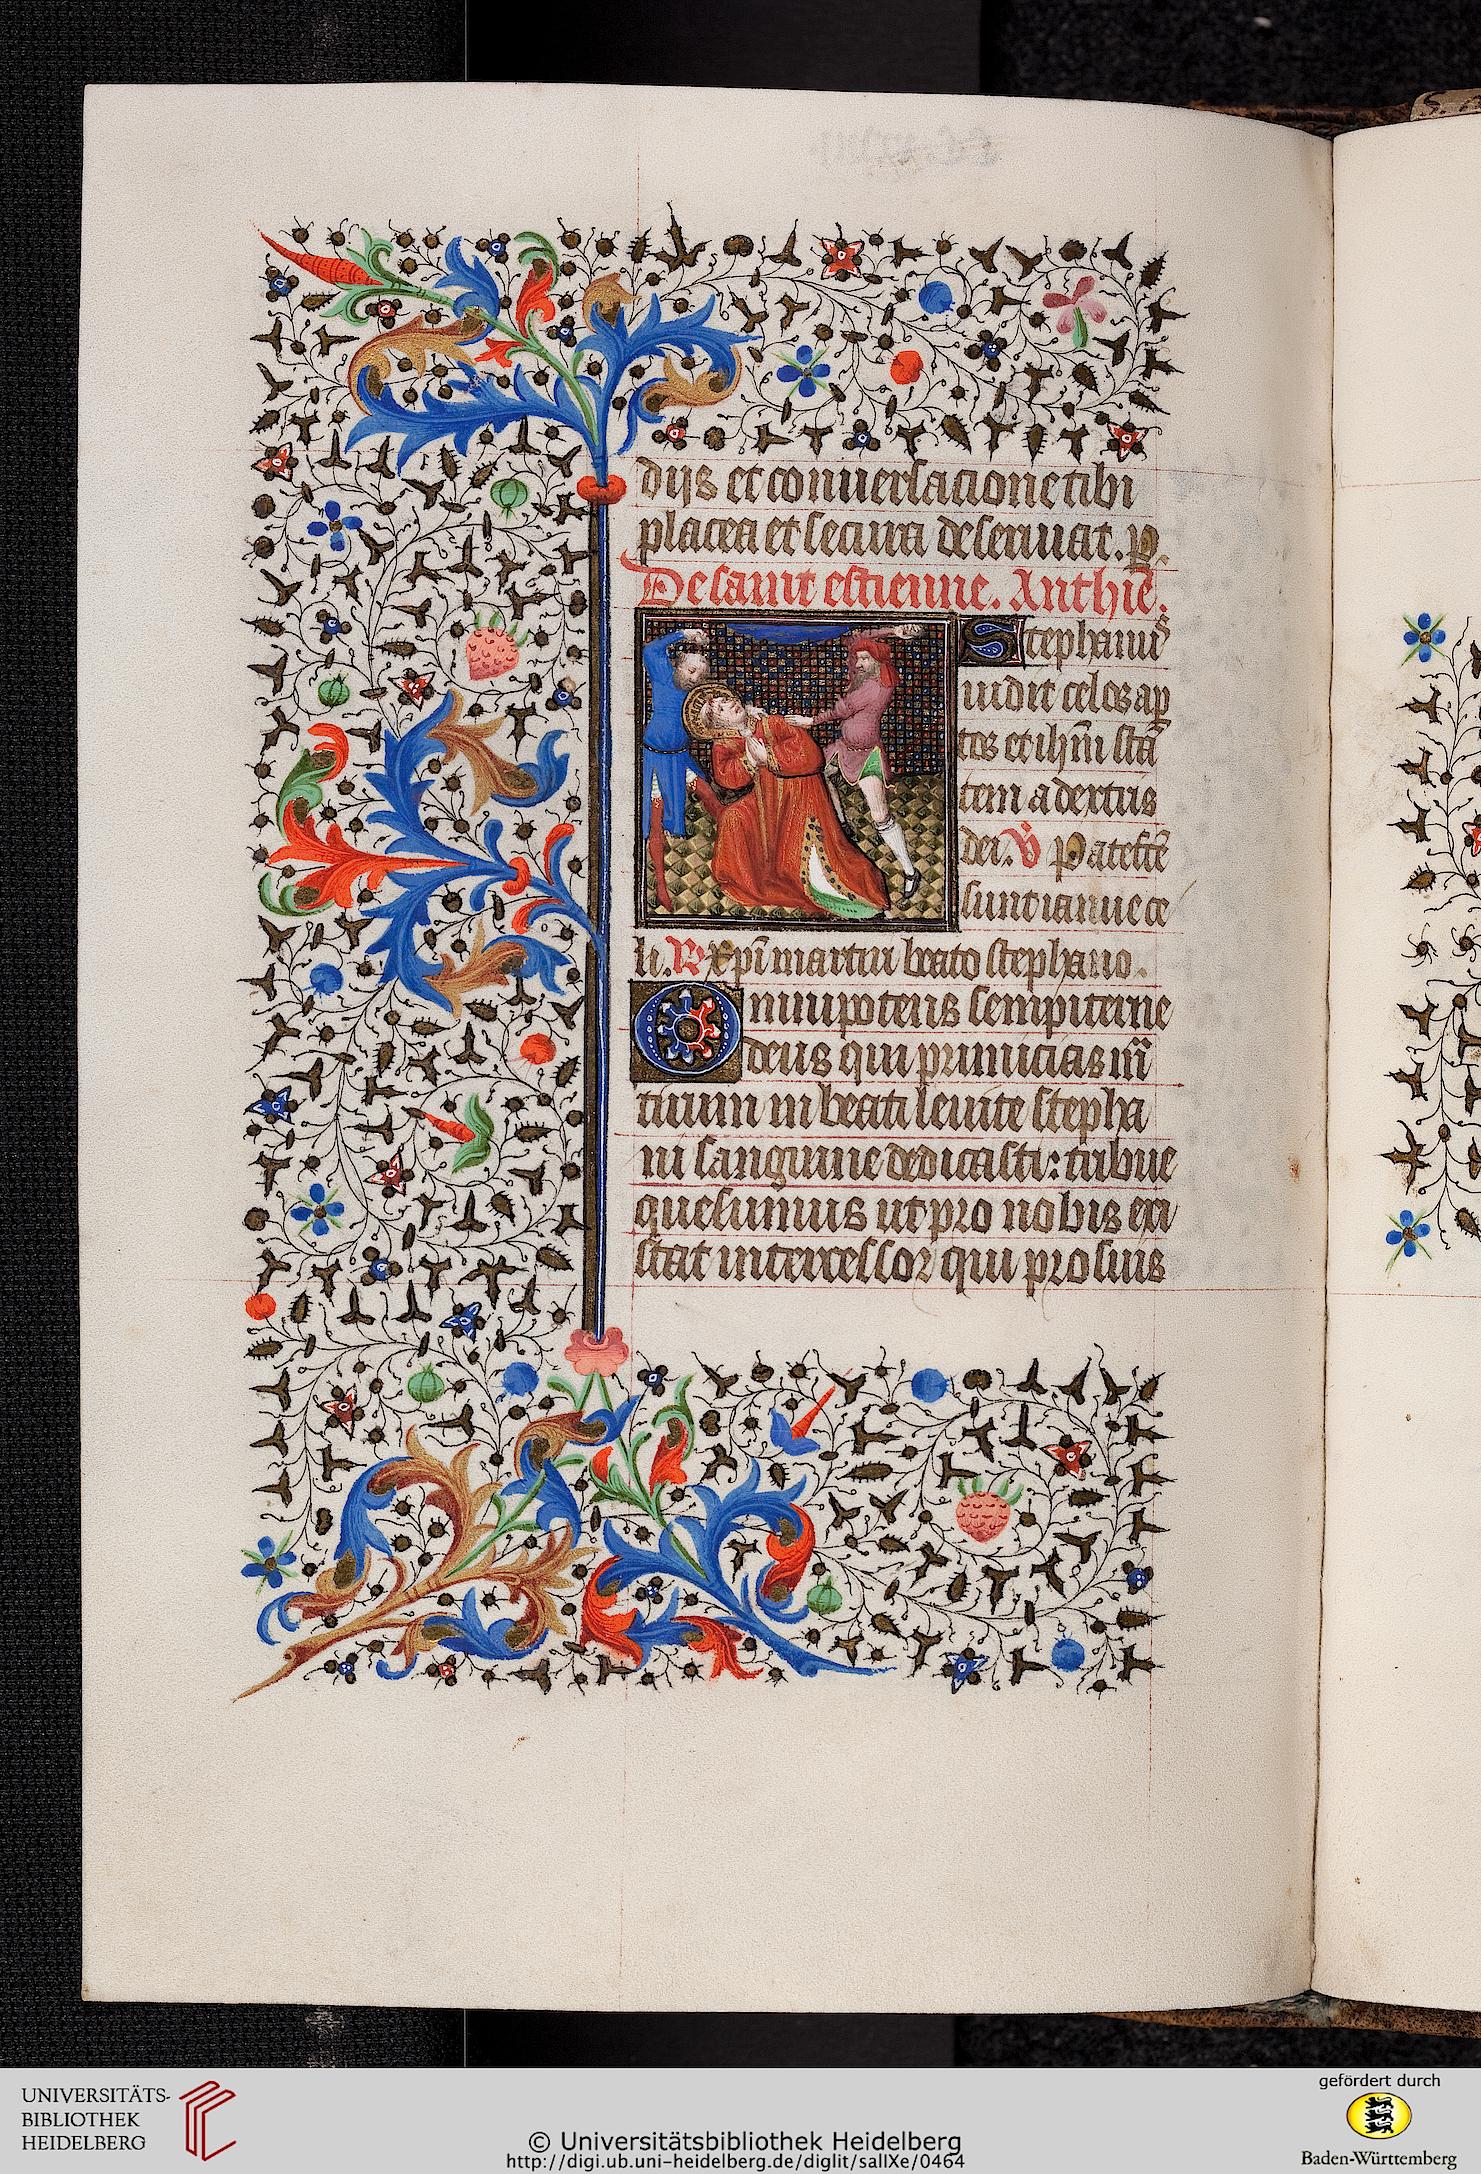 dijs et conuersacione tibi
placea et secura deseruiat. p.
De saint estienne. Anthiē.
Stephanus
uidit celos ap
tos et ihm̄ stā
tem a dextris
dei. V̄ Patefcē
sunt ianue ce
li. R xp̄i martiri beato stephano.
Omnipotens sempiterne
deus qui primicias m̄r̄
tirum in beati leuite stepha
ni sanguine dedicasti: tribue
quesumus ut pro nobis exi
stat intercessor qui pro suis
UNIVERSITÄTS-
BIBLIOTHEK
HEIDELBERG
© Universitätsbibliothek Heidelberg
http://digi.ub.uni-heidelberg.de/diglit/salIXe/0464
gefördert durch
Baden-Württemberg